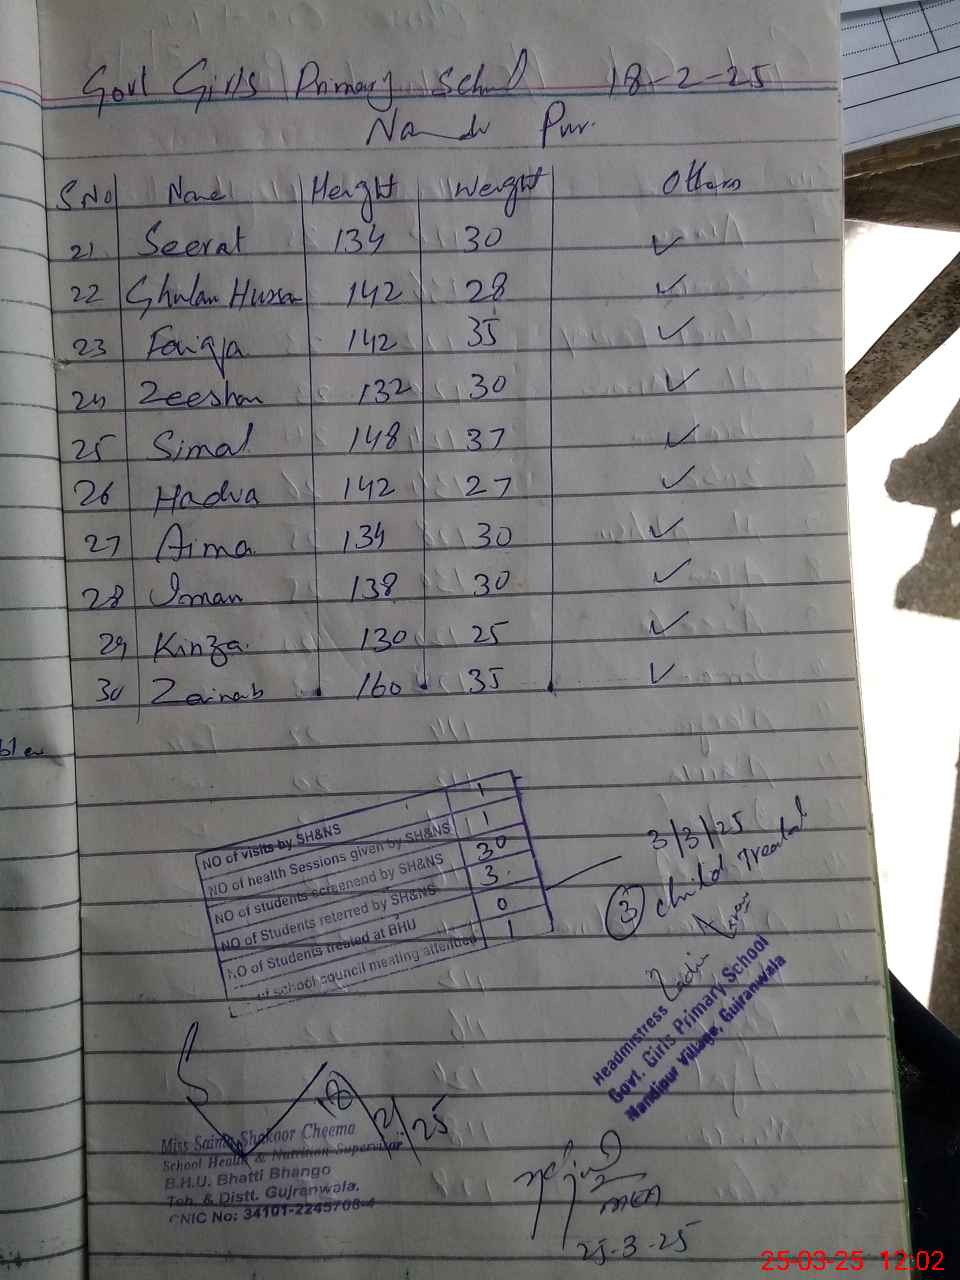 Govt Girls Primary School 18-2-25
Nandi Pur.
S.No Name Height Weight Others
21 Seerat 134 30 ✓
22 Ghulam Hussan 142 28 ✓
23 Faiqja 142 35 ✓
24 Zeeshan 132 30 ✓
25 Simal 148 37 ✓
26 Hadva 142 27 ✓
27 Aima 134 30 ✓
28 Iman 138 30 ✓
29 Kinza. 130 25 ✓
30 Zainab 160 35 ✓
NO of visits by SH&NS 1
NO of health Sessions given by SH&NS 1
NO of students screenend by SH&NS 30
NO of Students referred by SH&NS 3
NO of Students treated at BHU 0
of school council meeting attended 1
3/3/25
3 child Treated
Headmistress
Govt. Girls Primary School
Nandipur Village, Gujranwala
18/2/25
Miss Saima Shakoor Cheema
School Health & Nutrition Supervisor
B.H.U. Bhatti Bhango
Teh. & Distt. Gujranwala.
CNIC No: 34101-2245708-4
MEA
25-3-25
25-03-25 12:02